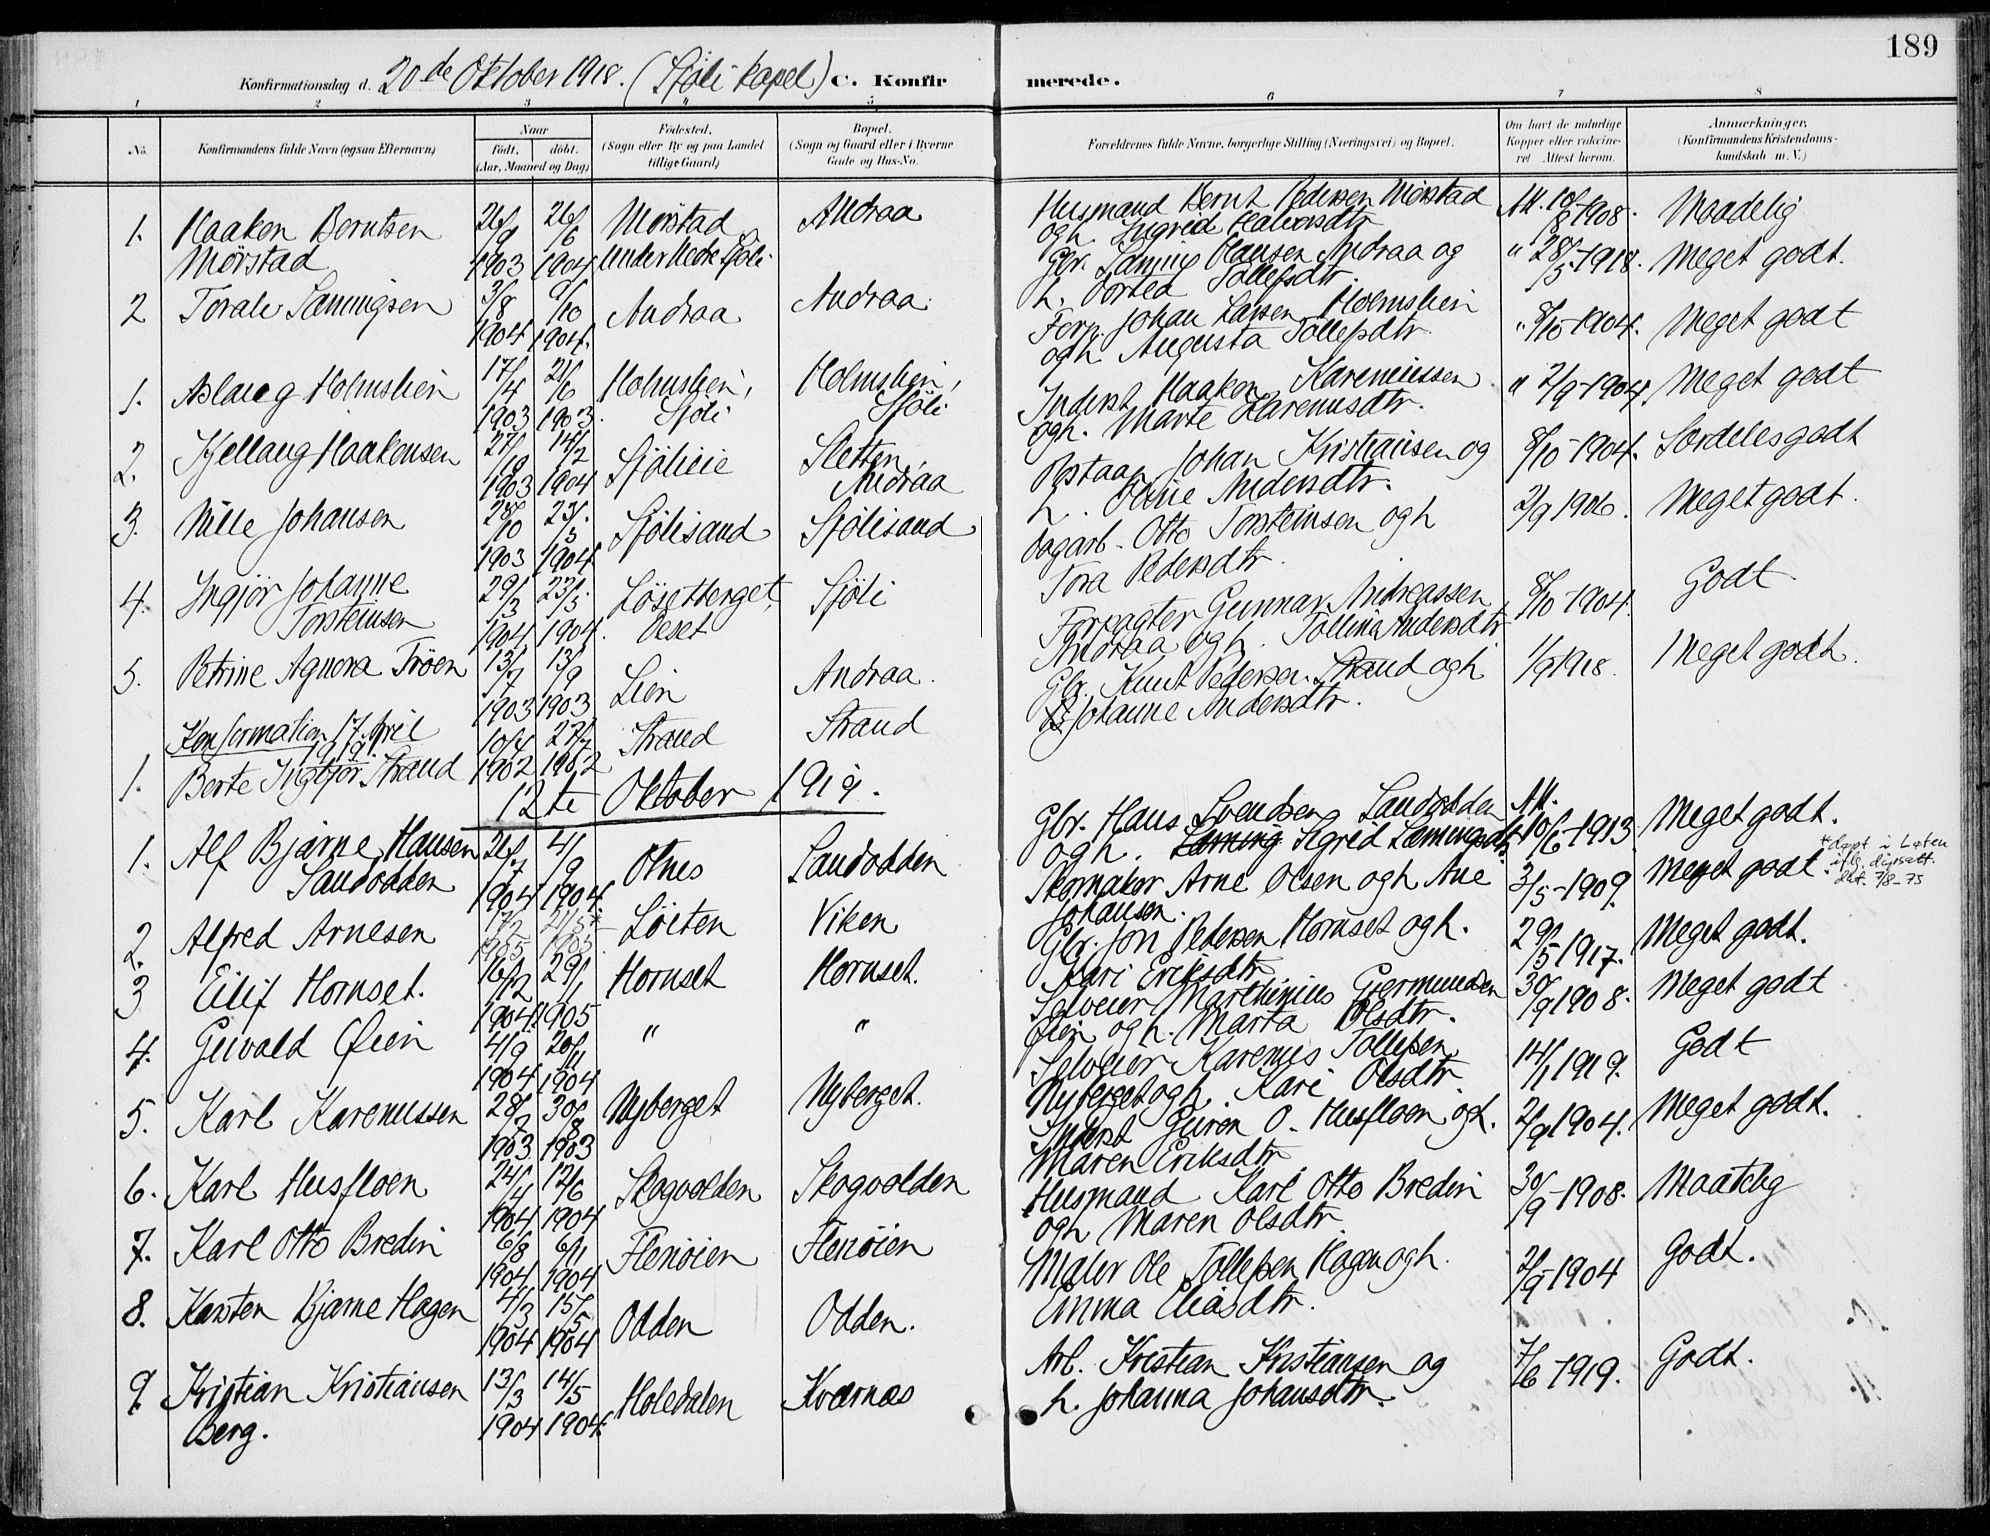 189
Konfirmationsdag d. 20de Oktober 1918. (Sjøli kapel) C. Konfirmerede.
1 2 3 4 5 6 7 8
No. Konfirmandens fulde Navn (ogsaa Efternavn) Naar født, døbt. (Aar, Maaned og Dag) Fødested. (Sogn eller By og paa Landet tillige Gaard) Bopæl. (Sogn og Gaard eller i Byerne Gade og Hus-No. Forældrenes fulde Navne, borgerlige Stilling (Næringsvei) og Bopæl. Om havt de naturlige Kopper eller vakcineret Attest herom. Anmærkninger. (Konfirmandens Kristendomskundskab m. V.)
1. Haaken Berntsen Mørstad 26/9 1903 26/6 1904 Mørstad under Nedre Sjøli Andraa
Husmand Bernt Pedersen Mørstad og h. Ingrid Halvorsdtr. Att. 10/8 1908. Maadelig
2 Torale Sæmingsen 3/8 1904 9/10 1904. Andraa Andraa.
Gbr. Sæming Olausen Andraa og h. Tollefsdtr. " 28/5-1918. Meget godt.
1. Aslaug Holmslien 17/4 1903 21/6 1903. Holmslien, Sjøli Holmslien, Sjøli
Forp. Johan Larsen Holmslien og h. Augusta Tollefsdtr. " 8/10-1904. Meget godt
2. Kjellaug Haakensen 27/10 1903 14/2 1904 Sjølieie Sletten, Andraa
Inderst Haaken Karenussen og h. Marte Karenusdtr. " 2/9-1904. Meget godt
3. Nille Johansen 28/10 1903 23/5 1904. Sjølisand Sjølisand
Johan Kristiansen og h. Oline Andersdtr. 8/10-1904. Særdeles godt
4. Ingjør Johanne Torsteinsen 29/3 1904 23/5 1904. Løsetberget, Øeset Sjøli
Dagarb. Otto Torsteinsen og h Tora Pedersdtr. 2/9 1906. Meget godt.
5. Petrine Agnora Trøen 13/7 1903 13/9 1903 Lien Andraa.
Forpagter Gunnar Andreassen Andraa og h. Tollina Andersdtr 8/10-1904. Godt
Konfirmation 17. April 1919.
1. Berte Ingbjør Strand 10/4 1902 27/7 1902 Strand Strand
Gbr. Knut Pedersen Strand og h Johanne Andersdtr. 1/9 1918. Meget godt.
12te Oktober 1919.
1. Alf Bjarne Hansen Sandodden 26/7 1904 4/9 1904. Otnes Sandodden
Gbr. Hans Svendsen Sandodden og h. Sæming Sigrid Sæmingsdtr Att. 10/6-1913 Meget godt.
2. Alfred Arnesen 17/2 1905 21/5* 1905 Løiten Viken
Skomaker Arne Olsen og h Ane Johansen. 3/5-1909. Meget godt.
* døpt i Løten iflg. dåpsatt. dat. 7/8-75
3 Eilif Hornset. 16/12 1904. 29/1 1905 Hornset Hornset.
Gbr. Jon Pedersen Hornset og h. Kari Eriksdtr 29/5 1917. Meget godt.
4. Geivald Øien 4/9 1904 20/11 1904 " "
Selveier Marthinius Gjermundsen Øien og h. Marta Olsdtr. 30/9 1908. Meget godt
5. Karl Karenussen 28/7 1903 30/8 1903 Nyberget Nyberget.
Selveier Karenus Tollefsen Nyberget og h. Kari Olsdtr 14/1 1919. Godt
6. Karl Husfloen 24/4 1904. 12/6 1904 Skogvolden Skogvolden
Inderst Guren O. Husfloen og h. Maren Eriksdtr 2/9 1904. Meget godt.
7. Karl Otto Bredin 6/8 1904. 6/11 1904 Flenøien Flenøien
Husmand Karl Otto Bredin og h Maren Olsdtr. 30/9-1908. Maatelig
8. Karsten Bjarne Hagen 4/3 1904 15/5 1904 Odden Odden.
Maler Ole Tollefsen Hagen og h. Emma Eliasdtr. 2/9-1904 Godt.
9 Kristian Kristiansen Berg. 13/3 1904 14/5 1904. Holedalen Kværnæs
Arb. Kristian Kristiansen og h. Johanna Johansdtr. 7/6-1919. Godt.